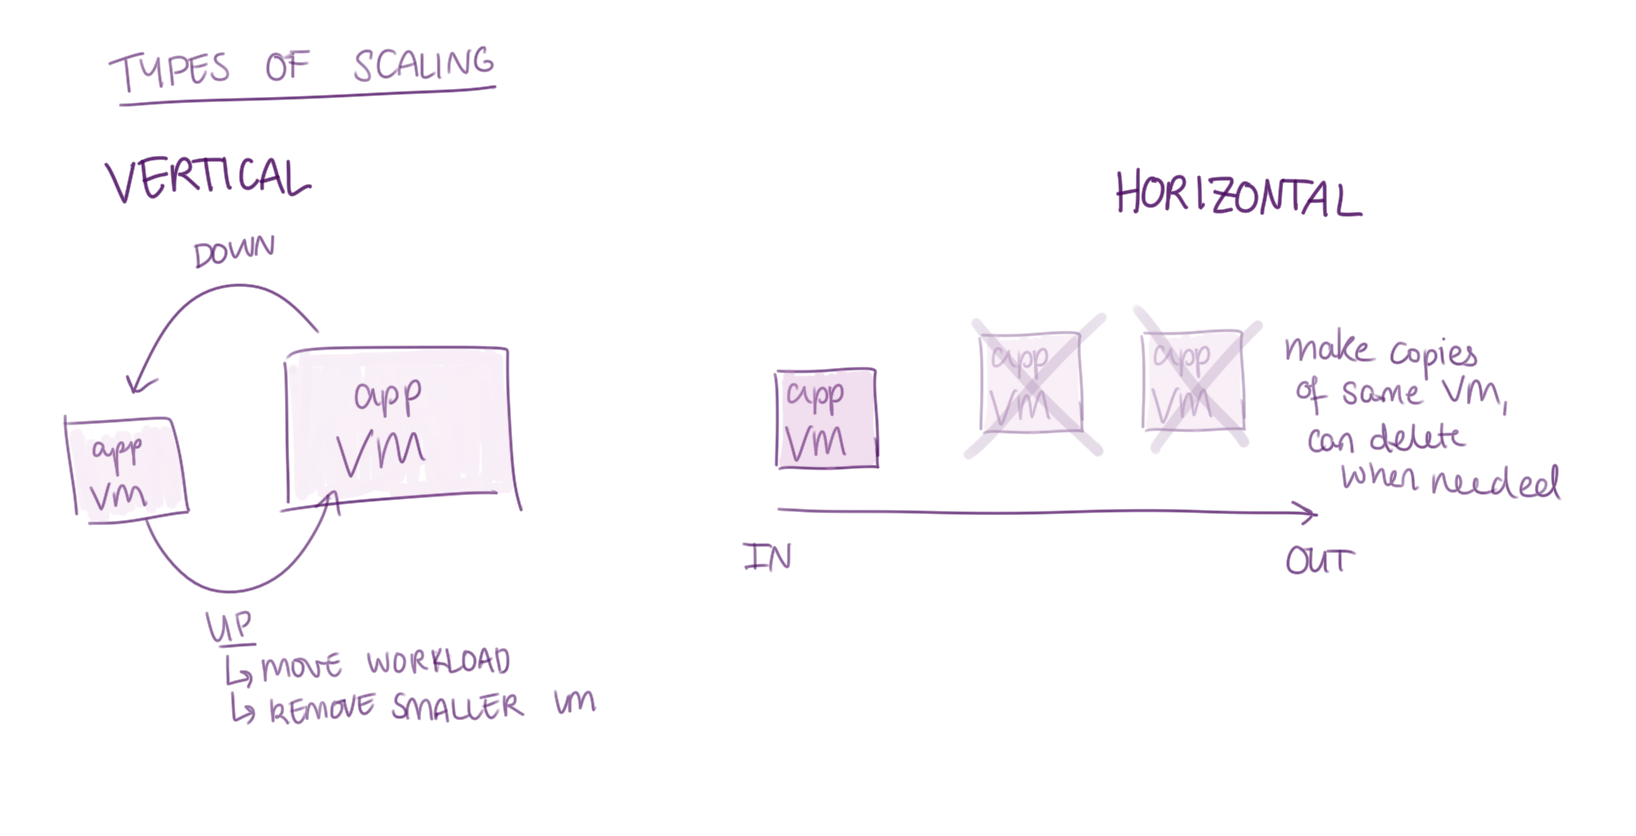 TYPES OF SCALING
VERTICAL
DOWN
app
VM
app
VM
UP
MOVE WORKLOAD
REMOVE SMALLER VM
HORIZONTAL
app
VM
app
VM
app
VM
make copies
of same VM,
can delete
when needed
IN
OUT